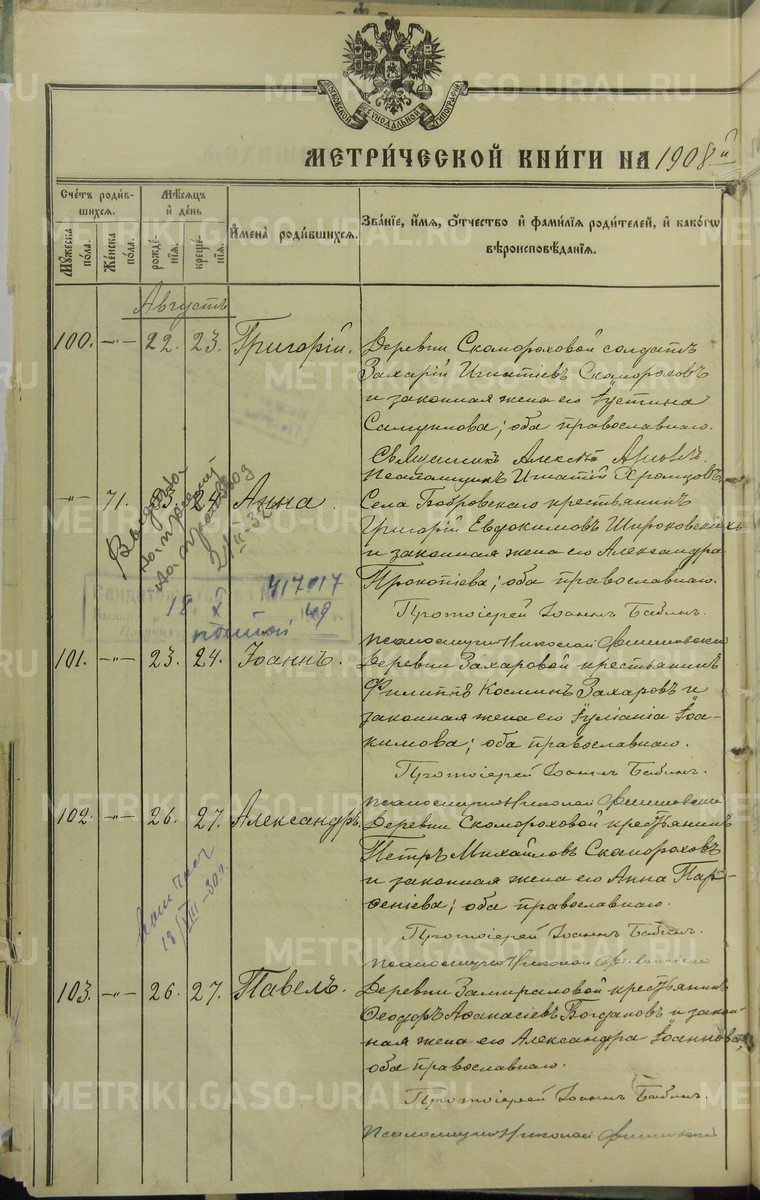 МОСКОВСКОЙ СѴНОДАЛЬНОЙ ТИПОГРАФІИ
МЕТРИ́ЧЕСКОЙ КНИ́ГИ НА 1908 й
Сче́тъ роди́в-
шихся.
Му́жеска по́ла.
Же́нска по́ла.
Мѣ́сяцъ
и҆ де́нь
рожде́-
нїѧ.
креще́-
нїѧ.
И҆мена̀ роди́вшихся.
Зва́нїе, и҆́мѧ, ѻ҆́тчество и҆ фами́лїѧ роди́телей, и҆ како́гѡ
вѣроисповѣ́данїѧ.
Августъ
100. —„— 22. 23. Григорій.
Деревни Скомороховой солдатъ
Захарій Игнатіевъ Скомороховъ
и законная жена его Іустина
Самуилова; оба православнаго.
Священникъ Алексѣй
Псаломщикъ Игнатій Хромцовъ
—„— 71. 23. 24. Анна
Села Бобровскаго крестьянинъ
Григорій Евдокимовъ Широковскихъ
и законная жена его Александра
Прокопіева; оба православнаго.
Протоіерей Іоаннъ Бабинъ.
Псаломщикъ Николай
18
X
417017
49
101. —„— 23. 24. Іоаннъ.
Деревни Захаровой крестьянинъ
Филиппъ Косминъ Захаровъ и
законная жена его Іуліанія Іоа-
кимова; оба православнаго.
Протоіерей Іоаннъ Бабинъ.
Псаломщикъ Николай
102. —„— 26. 27. Александръ.
Деревни Скомороховой крестьянинъ
Петръ Михайловъ Скомороховъ
и законная жена его Анна Пар-
ѳеніева; оба православнаго.
Протоіерей Іоаннъ Бабинъ.
Псаломщикъ Николай
103. —„— 26. 27. Павелъ.
Деревни Замираловой крестьянинъ
Ѳеодоръ Аѳанасіевъ Богдановъ и закон-
ная жена его Александра Іоаннова;
оба православнаго.
Протоіерей Іоаннъ Бабинъ.
Псаломщикъ Николай
METRIKI.GASO-URAL.RU